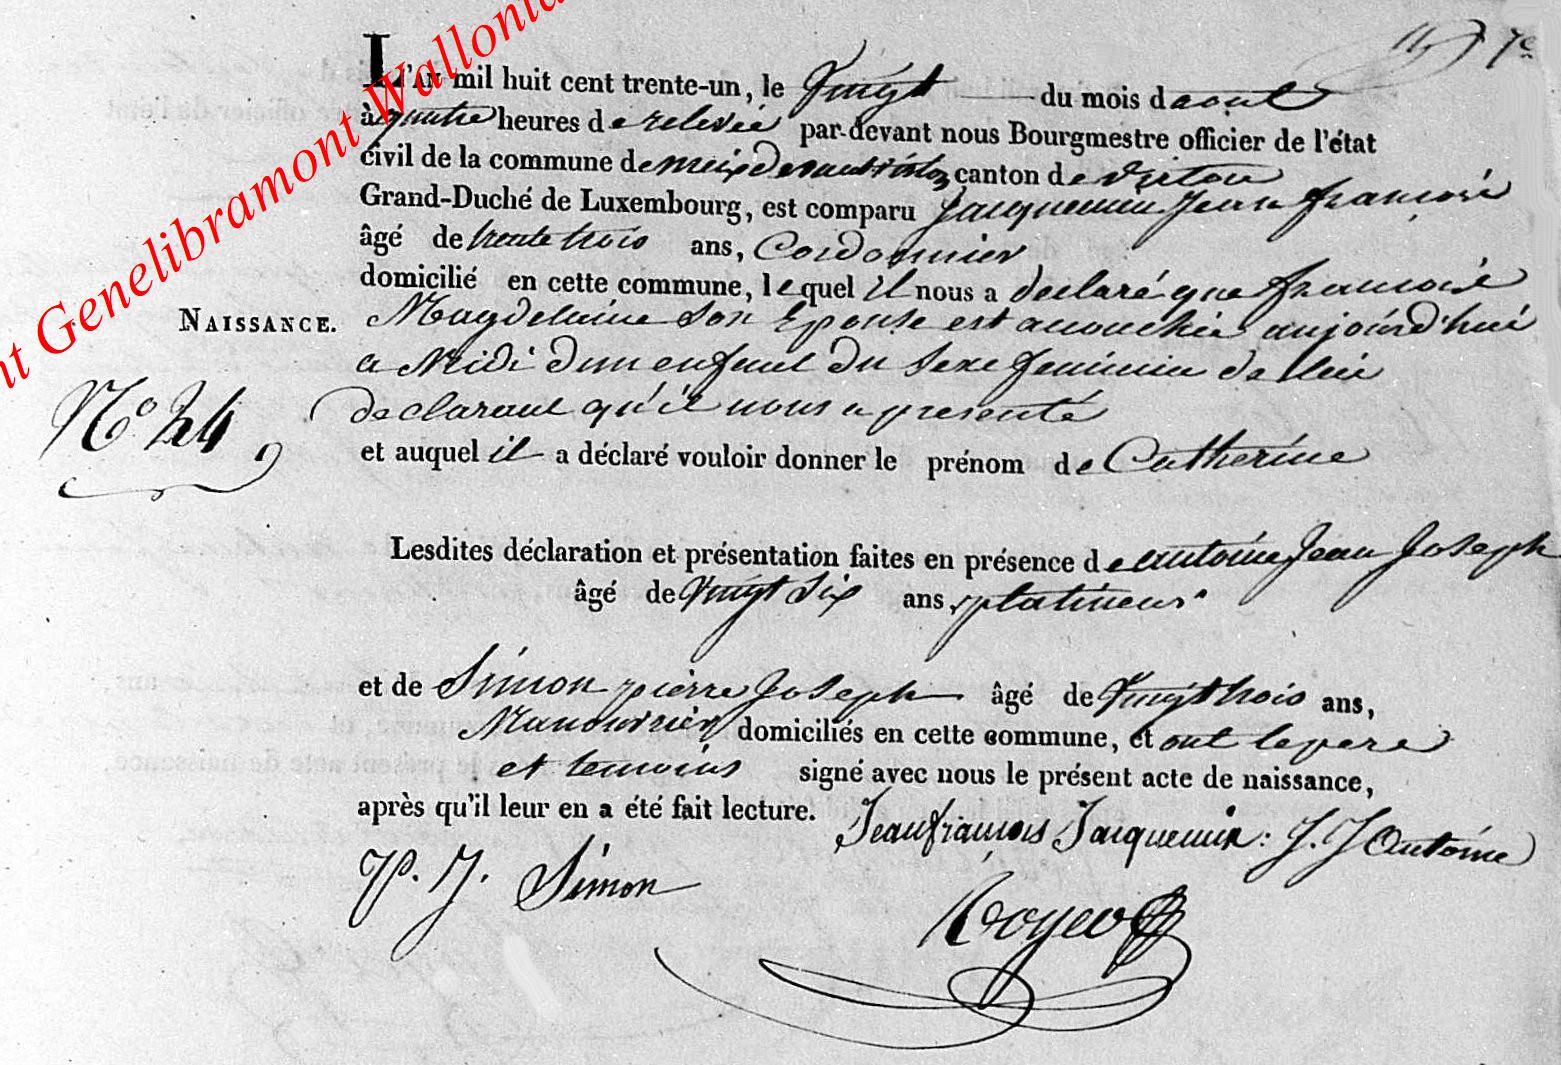 7e
L'AN mil huit cent trente-un, le Vingt du mois d aout
à quatre heures d e relevée par-devant nous Bourgmestre officier de l'état
civil de la commune d e meix devant virton canton d e virton
Grand-Duché de Luxembourg, est comparu Jacquemin Jean françois
âgé de trente trois ans, Cordonnier
domicilié en cette commune, le quel il nous a declaré que françoise
NAISSANCE. Magdelaine Son Epouse est accouchée aujourd'hui
a Midi d'un enfant du Sexe feminin de lui
No 24 declarant qu'il nous a presenté
et auquel il a déclaré vouloir donner le prénom de Catherine
Lesdites déclaration et présentation faites en présence d e antoine Jean Joseph
âgé de Vingt Six ans, platineur
et de Simon pierre Joseph âgé de Vingt trois ans,
Manouvrier domiciliés en cette commune, et ont le pere
et temoins signé avec nous le présent acte de naissance,
après qu'il leur en a été fait lecture.
Jean françois Jacquemin : J. J Antoine
P. J. Simon
Genelibramont Wallonia